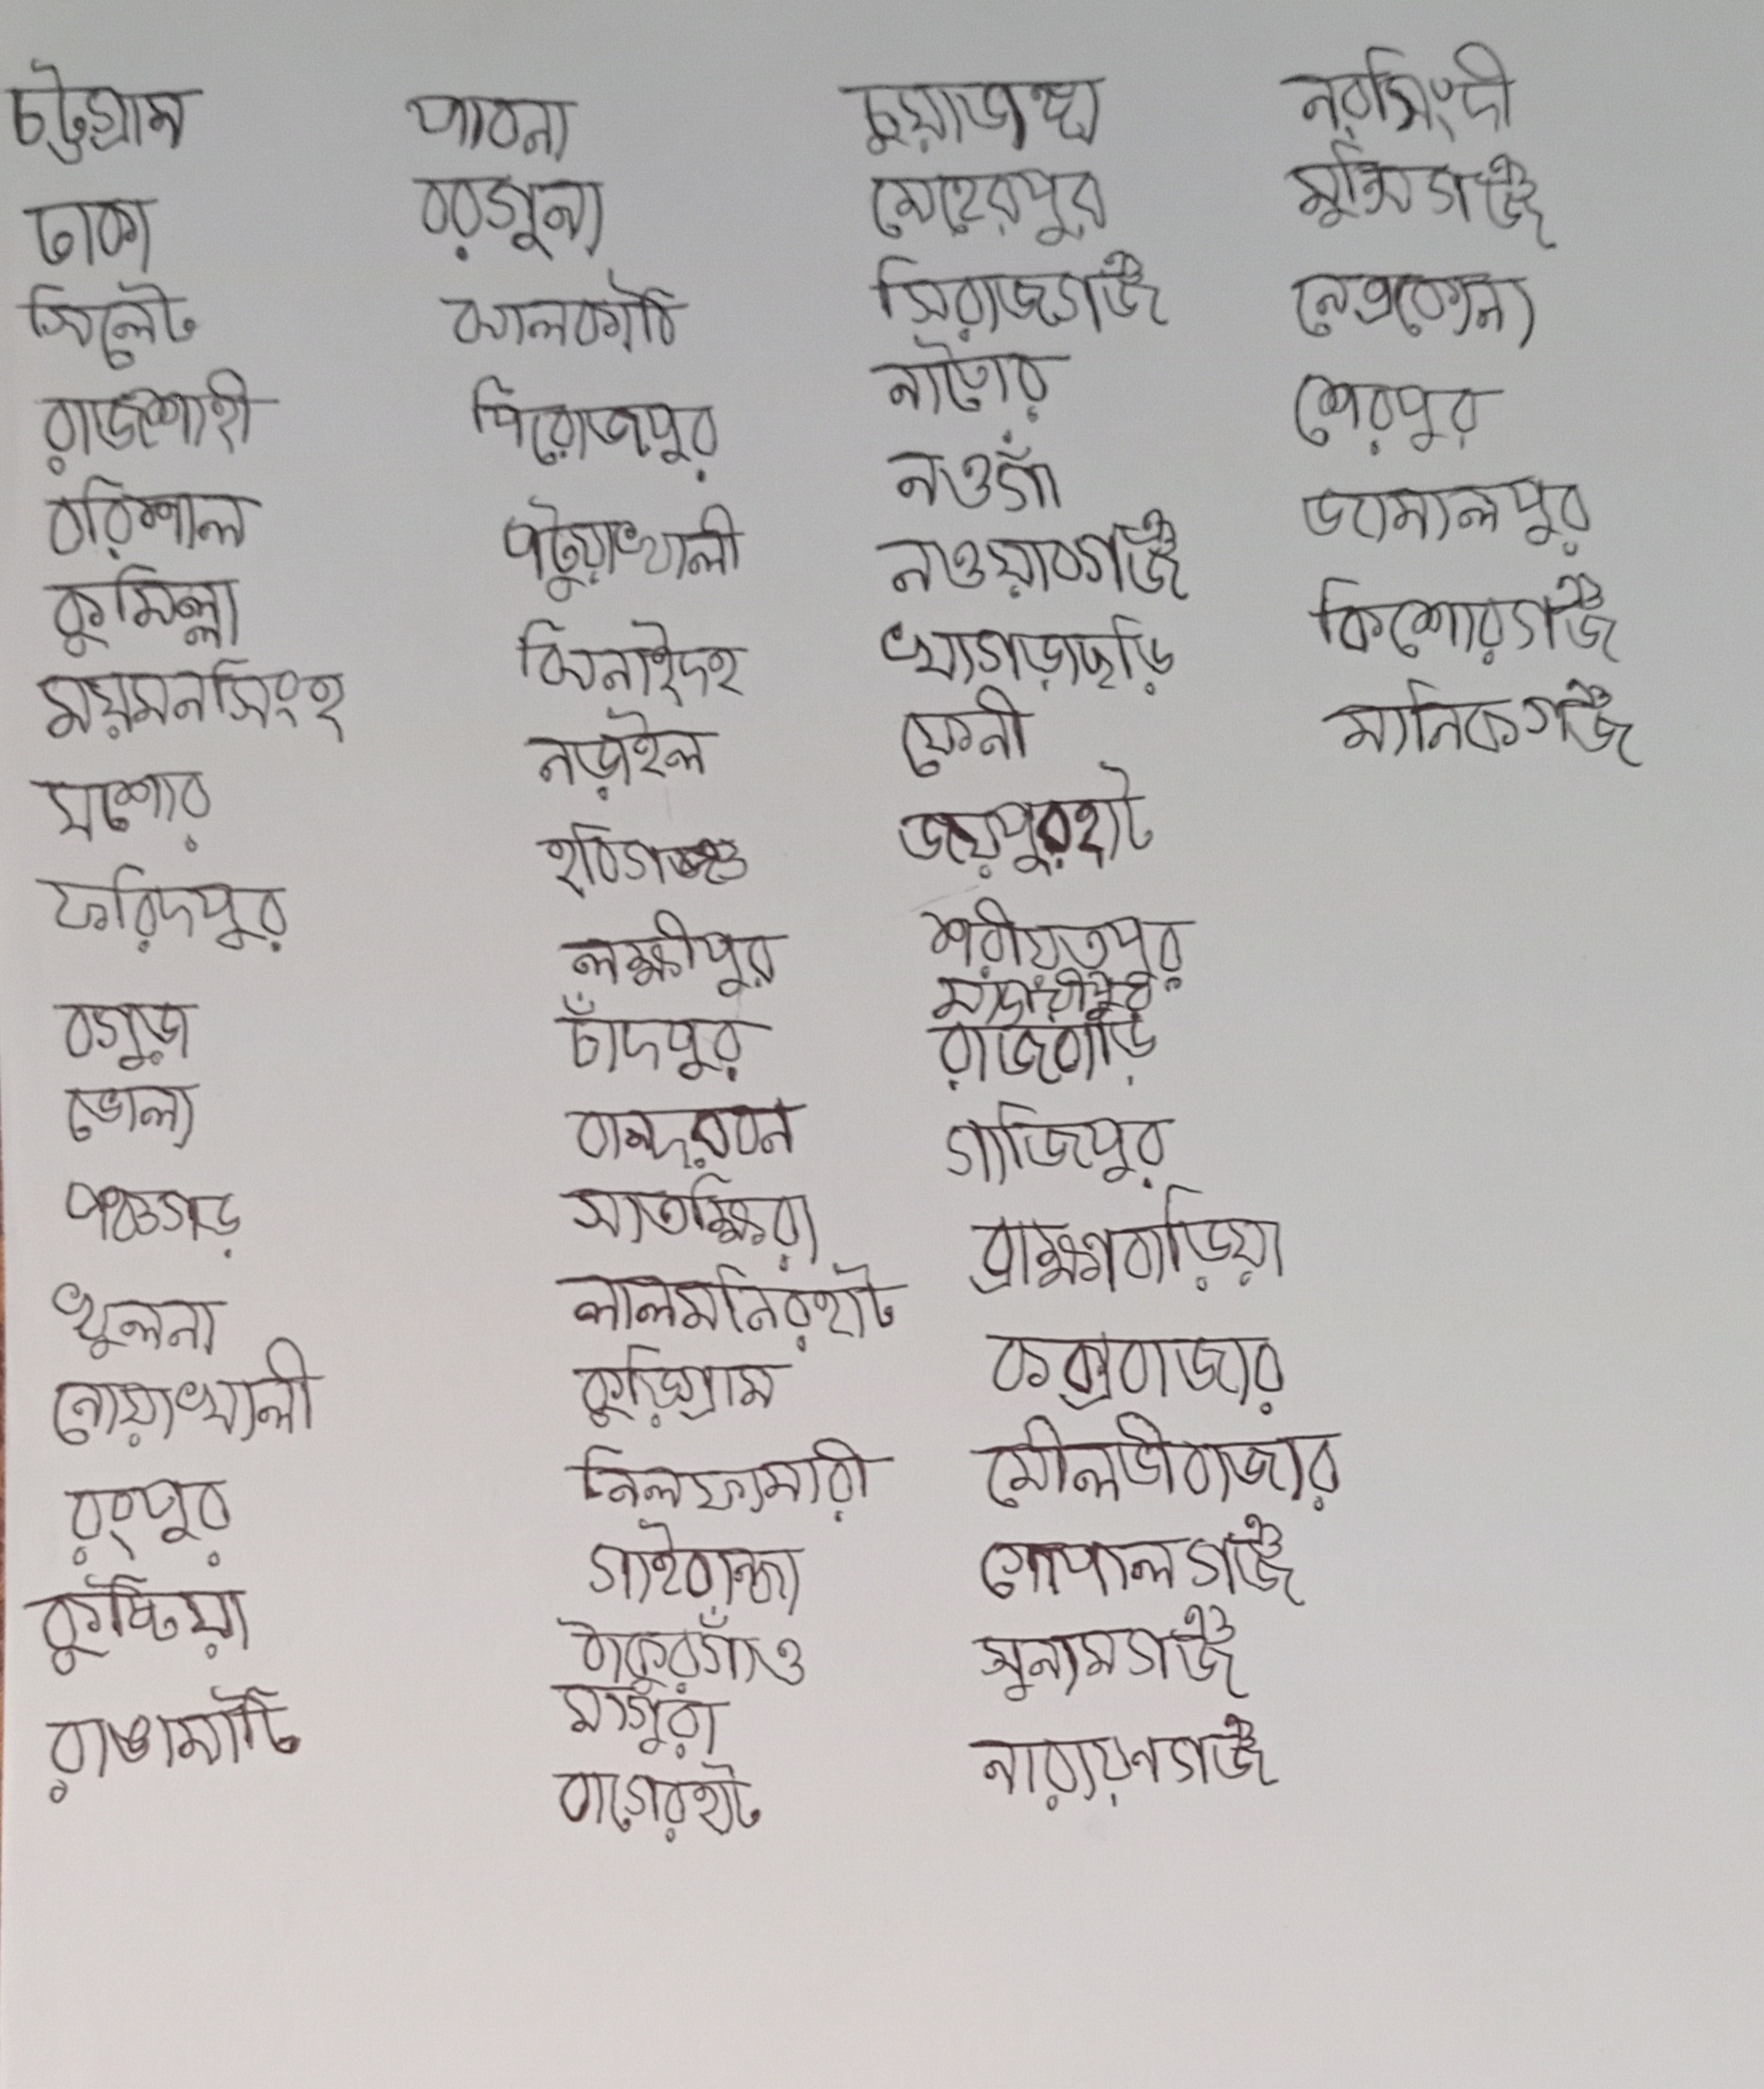 চট্টগ্রাম
ঢাকা
সিলেট
রাজশাহী
বরিশাল
কুমিল্লা
ময়মনসিংহ
যশোর
ফরিদপুর
বগুড়া
ভোলা
পঞ্চগড়
খুলনা
নোয়াখালী
রংপুর
কুষ্টিয়া
রাঙামাটি
পাবনা
বরগুনা
ঝালকাঠি
পিরোজপুর
পটুয়াখালী
ঝিনাইদহ
নড়াইল
হবিগঞ্জ
লক্ষীপুর
চাঁদপুর
বান্দরবন
সাতক্ষিরা
লালমনিরহাট
কুড়িগ্রাম
নিলফামারী
গাইবান্ধা
ঠাকুরগাঁও
মাগুরা
বাগেরহাট
চুয়াডাঙ্গা
মেহেরপুর
সিরাজগঞ্জ
নাটোর
নওগাঁ
নওয়াবগঞ্জ
খাগড়াছড়ি
ফেনী
জয়পুরহাট
শরীয়তপুর
মাদারীপুর
রাজবাড়ি
গাজিপুর
ব্রাহ্মণবাড়িয়া
কক্সবাজার
মৌলভীবাজার
গোপালগঞ্জ
সুনামগঞ্জ
নারায়ণগঞ্জ
নরসিংদী
মুন্সিগঞ্জ
নেত্রকোনা
শেরপুর
জামালপুর
কিশোরগঞ্জ
মানিকগঞ্জ